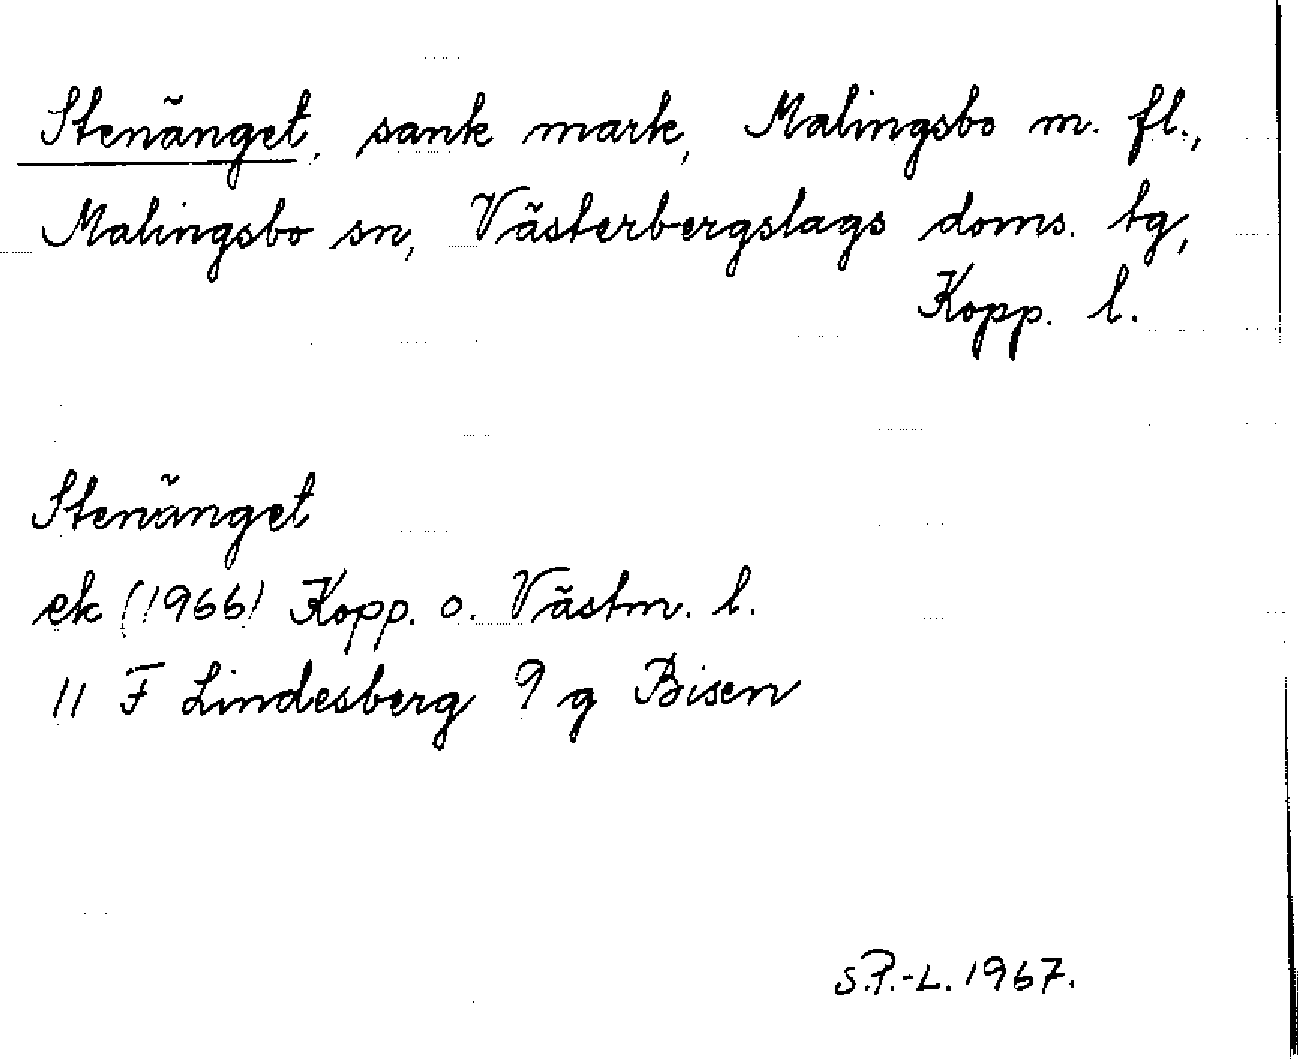 Stenänget, sank mark, Malingsbo m. fl.,
Malingsbo sn, Västerbergslags doms. tg,
Kopp. l.
Stenänget
ek (1966) Kopp. o. Västm. l.
11 F Lindesberg 9 g Bisen
S.P.-L. 1967.